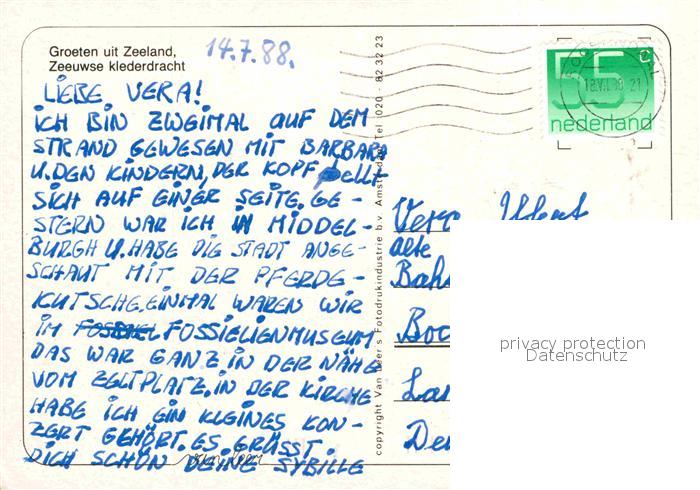 Groeten uit Zeeland,
Zeeuwse klederdracht
14.7.88.
LIEBE VERA!
ICH BIN ZWEIMAL AUF DEM
STRAND GEWESEN MIT BARBARA
U. DEN KINDERN, DER KOPF PELLT
SICH AUF EINER SEITE. GE-
STERN WAR ICH IN MIDDEL-
BURGH U. HABE DIE STADT ANGE-
SCHAUT MIT DER PFERDE-
KUTSCHE. EINMAL WAREN WIR
IM FOSSIELIENMUSEUM
DAS WAR GANZ IN DER NÄHE
VOM ZELTPLATZ. IN DER KIRCHE
HABE ICH EIN KLEINES KON-
ZERT GEHÖRT. ES GRÜSST
DICH SCHÖN DEINE SYBILLE
van Leer
copyright Van Leer's Fotodrukindustrie b.v. Amsterdam Tel. 020 - 82 32 23
55 c
nederland
18.VII.88 21
Vera
alte
Bah
Boc
La
De
privacy protection
Datenschutz